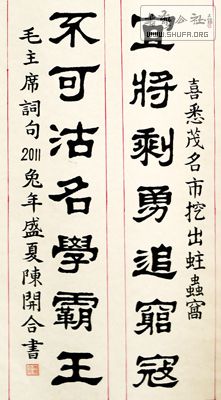 喜悉茂名市挖出蛀蟲窩
宜將剩勇追窮寇
不可沽名學霸王
毛主席詞句2011兔年盛夏陳開合書
公社
WWW.SHUFA.ORG